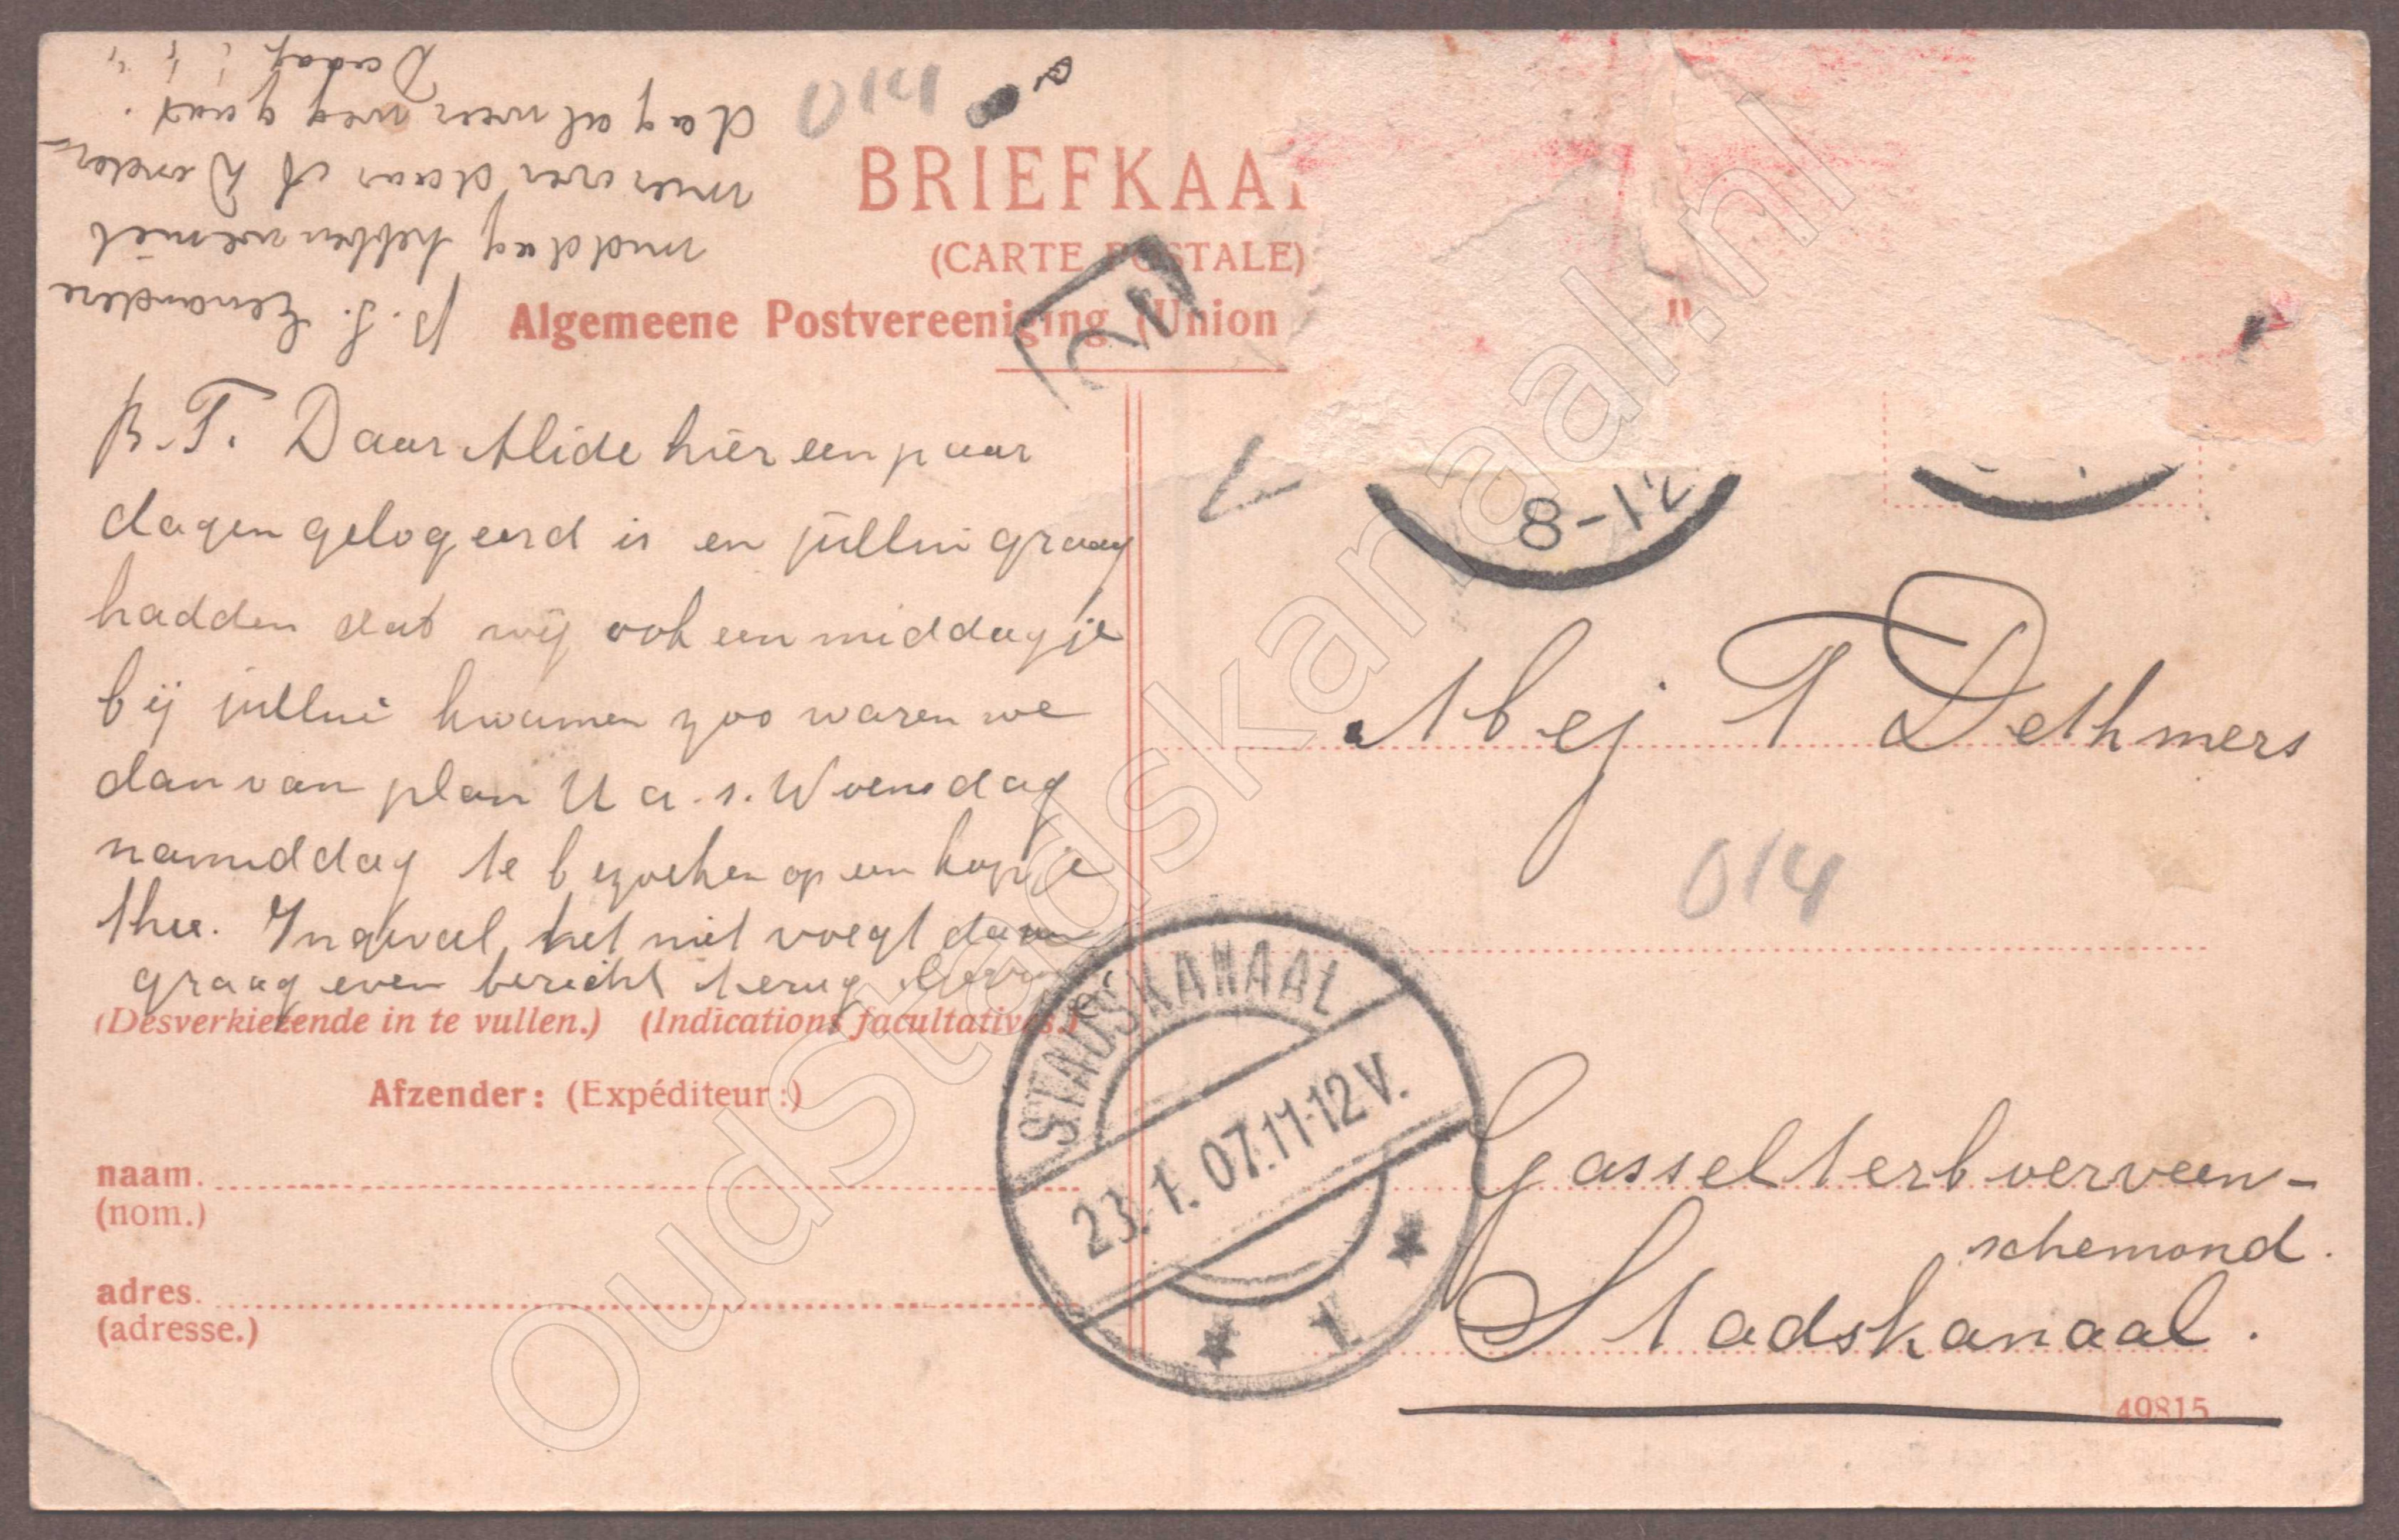 014
BRIEFKAA
(CARTE POSTALE)
Algemeene Postvereeniging (Union
B. T. Daar Alide hier een paar
dagen gelogeerd is en jullui graag
hadden dat wij ook een middagje
bij jullui kwamen zoo waren we
dan van plan U a. s. Woensdag
namiddag te bezoeken op een kopje
thee. Ingeval het niet voegt dan
graag even bericht terug.
(Desverkiezende in te vullen.) (Indications facultatives.)
Afzender: (Expéditeur:)
naam.
(nom.)
adres.
(adresse.)
p. s. Eenandere
middag hebben we niet
meer over daar A Donder-
dag al weer weg gaat.
Dadag
8-12
Mej T Dethmers
014
Gasselterboerveen-
schemond.
Stadskanaal.
49815
STADSKANAAL
23. 1. 07. 11-12 V.
1
OudStadskanaal.nl